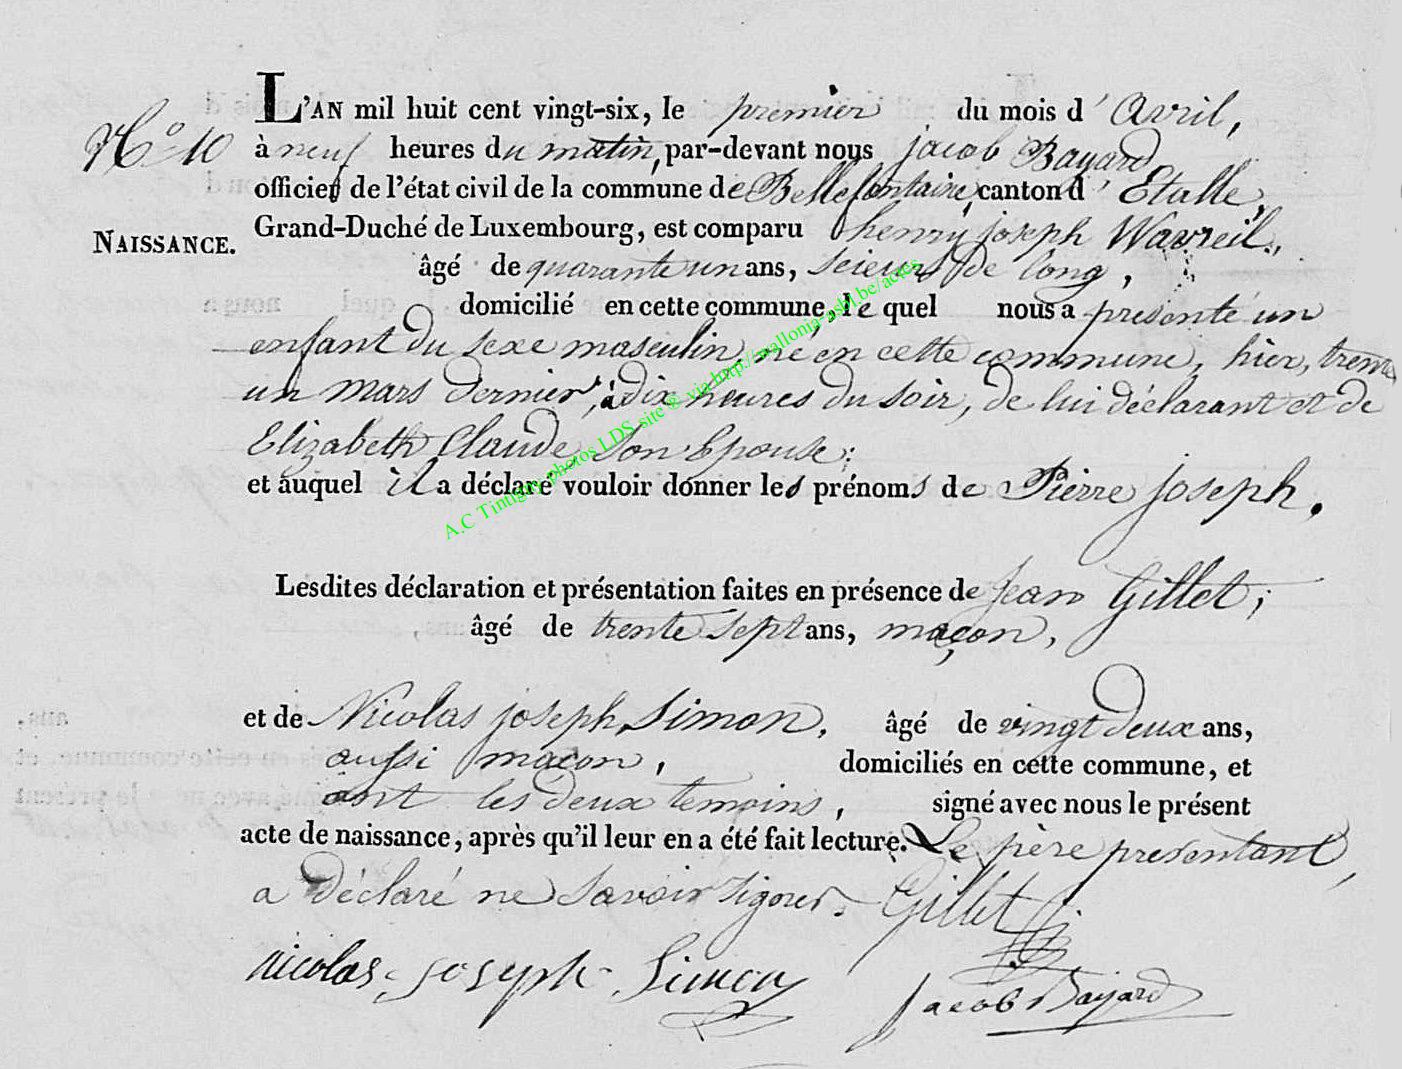 L'AN mil huit cent vingt-six, le premier du mois d'Avril,
N.º 10
à neuf heures du matin, par-devant nous jacob Bayard
officier de l'état civil de la commune de Bellefontaine, canton d'Etalle,
NAISSANCE.
Grand-Duché de Luxembourg, est comparu henry joseph Wavreil,
âgé de quarante un ans, scieur de long,
domicilié en cette commune, le quel nous a présenté un
enfant du sexe masculin, né en cette commune, hier, trente
un mars dernier, à dix heures du soir, de lui déclarant et de
Elizabeth Claude son Epouse;
et auquel il a déclaré vouloir donner les prénoms de Pierre joseph.
A.C Tintigny photos LDS site © via http://mallonia-asbl.be/actes
Lesdites déclaration et présentation faites en présence de Jean Gillet;
âgé de trente sept ans, maçon,
et de Nicolas joseph Simon, âgé de vingt deux ans,
aussi maçon, domiciliés en cette commune, et
ont les deux temoins, signé avec nous le présent
acte de naissance, après qu'il leur en a été fait lecture. Le père presentant,
a déclaré ne savoir signer. Gillet
nicolas joseph Simon
Jacob Bayard